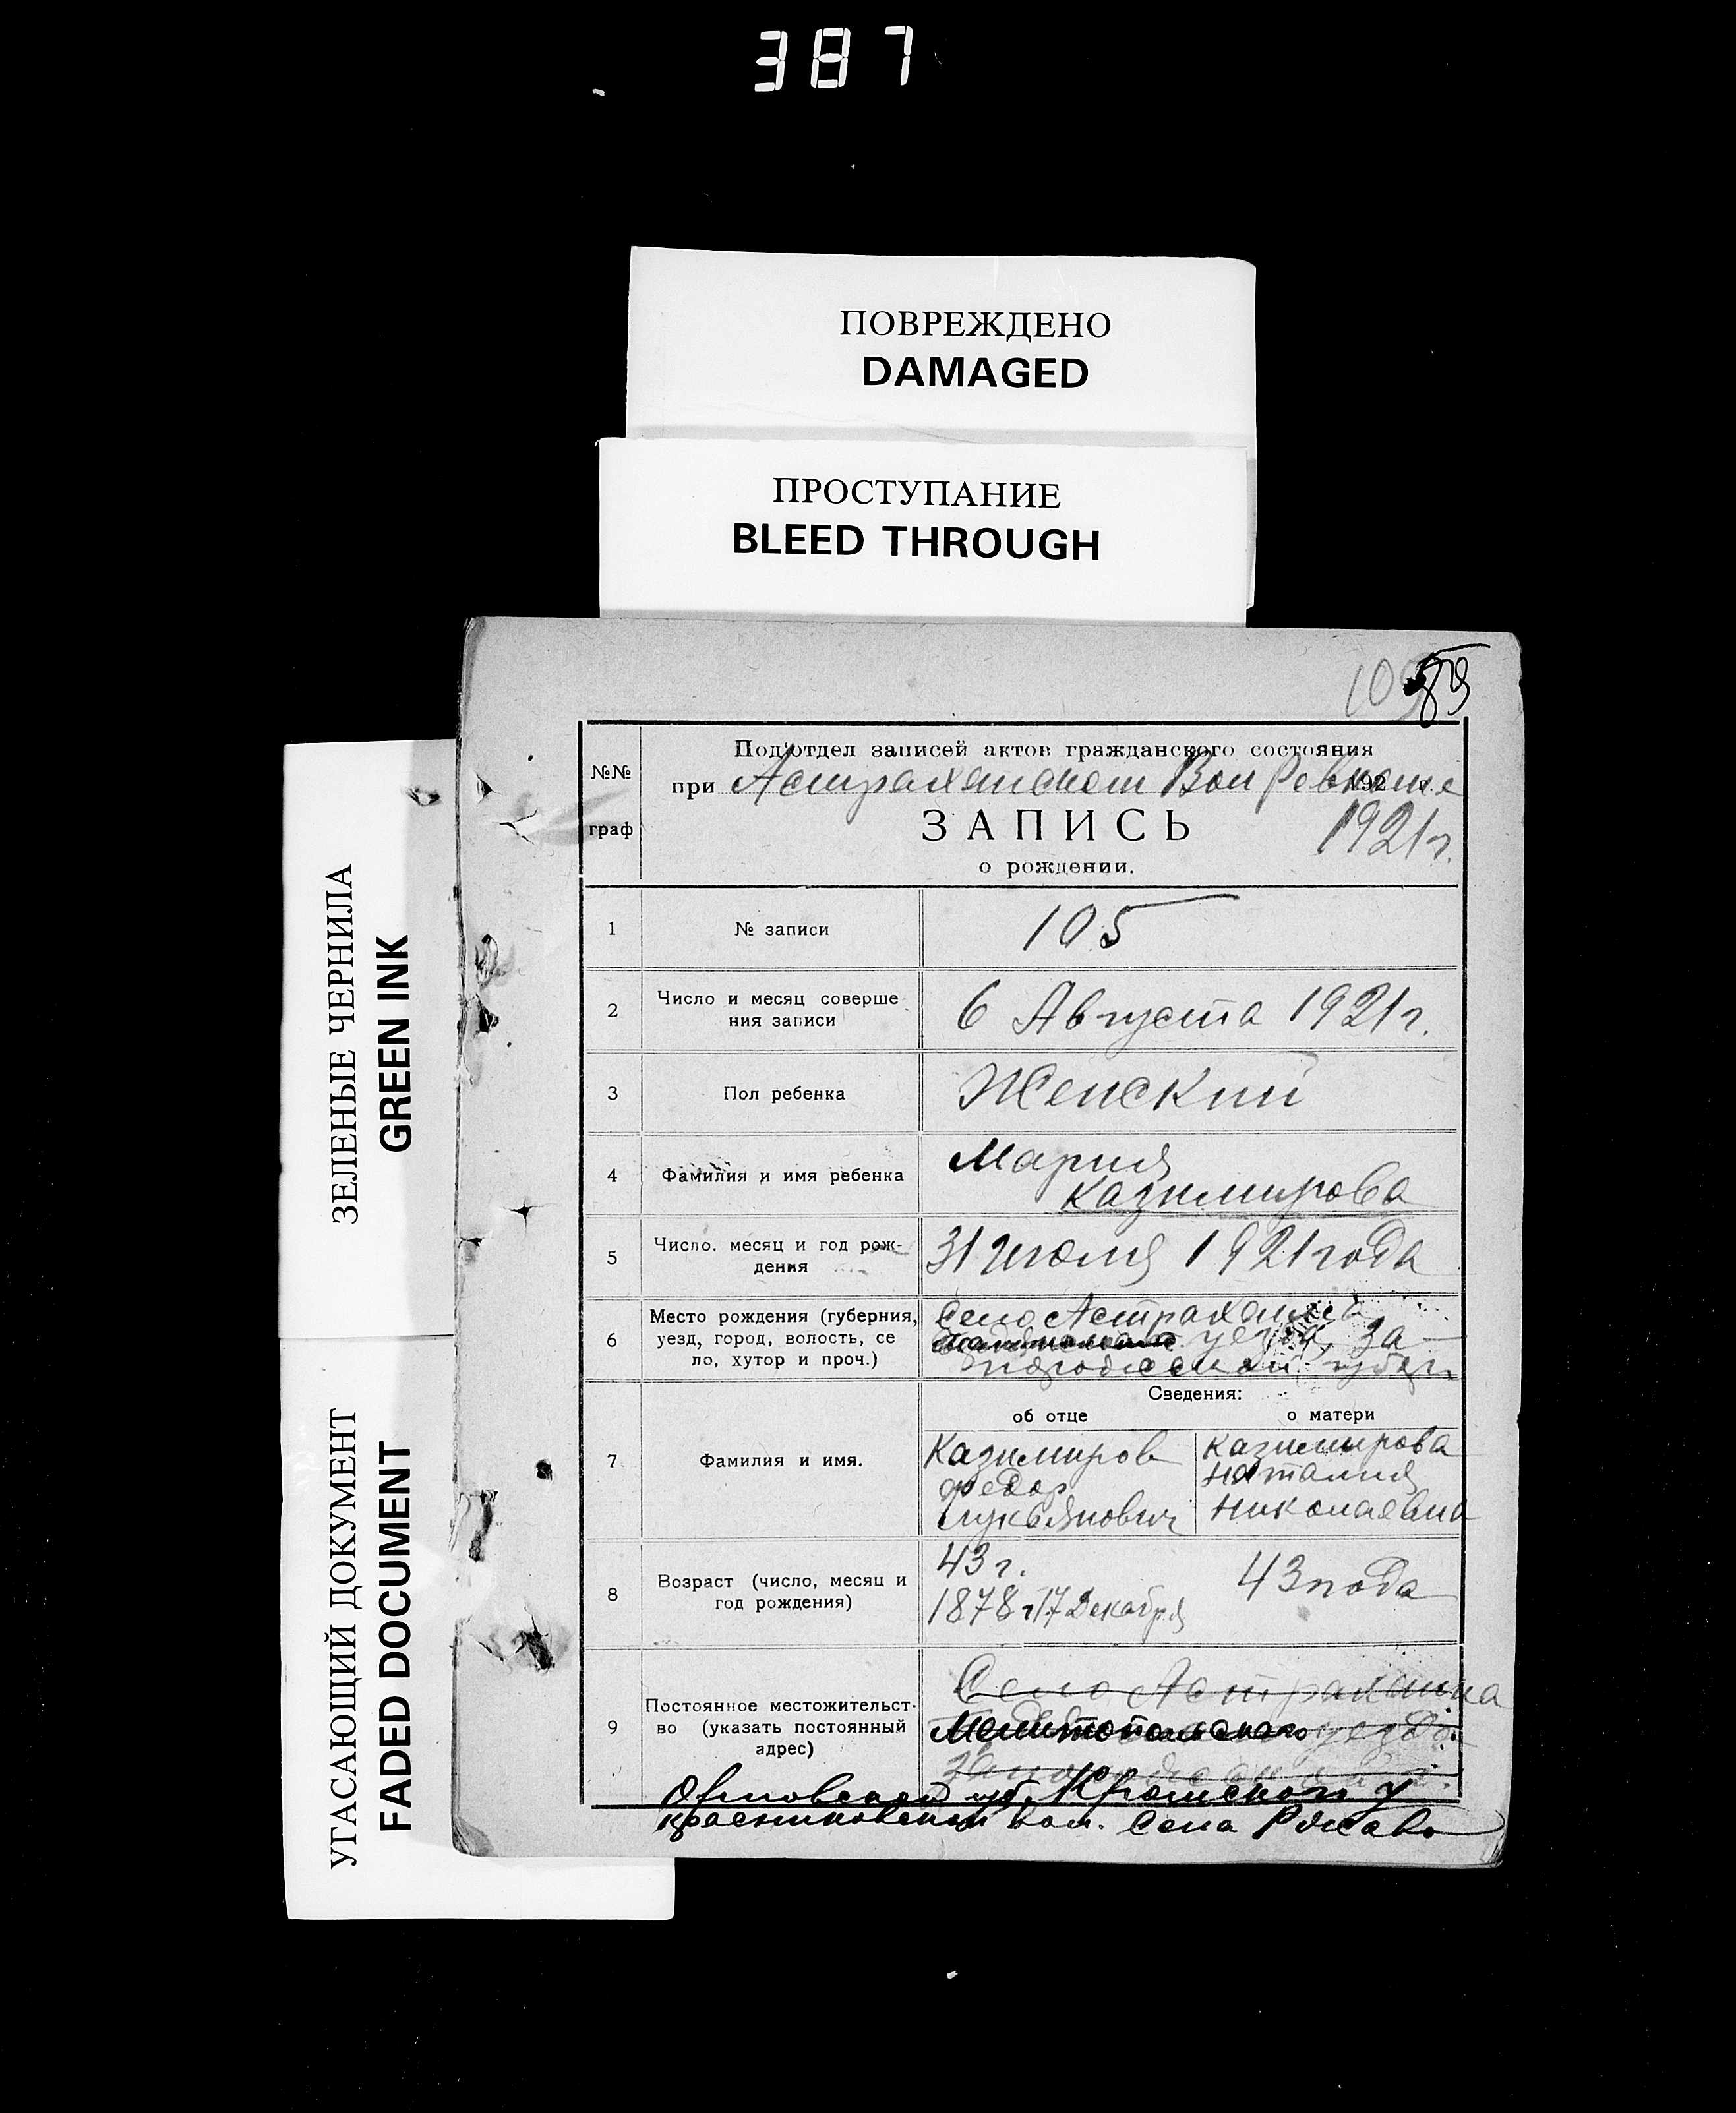 387
ПОВРЕЖДЕНО
DAMAGED
ПРОСТУПАНИЕ
BLEED THROUGH
ЗЕЛЕНЫЕ ЧЕРНИЛА
GREEN INK
УГАСАЮЩИЙ ДОКУМЕНТ
FADED DOCUMENT
№№
граф
Под'отдел записей актов гражданского состояния
при Астраханском Вол Ревкоме 192
ЗАПИСЬ
1921 г.
о рождении.
1 № записи 105
2 Число и месяц соверше
ния записи
6 Августа 1921 г.
3 Пол ребенка Женский
4 Фамилия и имя ребенка
Мария
Казимирова
5 Число, месяц и год рож-
дения
31 июля 1921 года
6 Место рождения (губерния,
уезд, город, волость, се
ло, хутор и проч.)
Село Астраханка
уезда, За-
губер
Сведения:
об отце
о матери
7 Фамилия и имя.
Казимиров
Федор
Лукьянович
Казимирова
Наталия
Николаевна
8 Возраст (число, месяц и
год рождения)
43 г.
1878 г 17 Декабря
43 года
9 Постоянное местожительст-
во (указать постоянный
адрес)
Село Астраханка
Мелитопольского уезда
Орловской губ. Кромской у
вол. Села